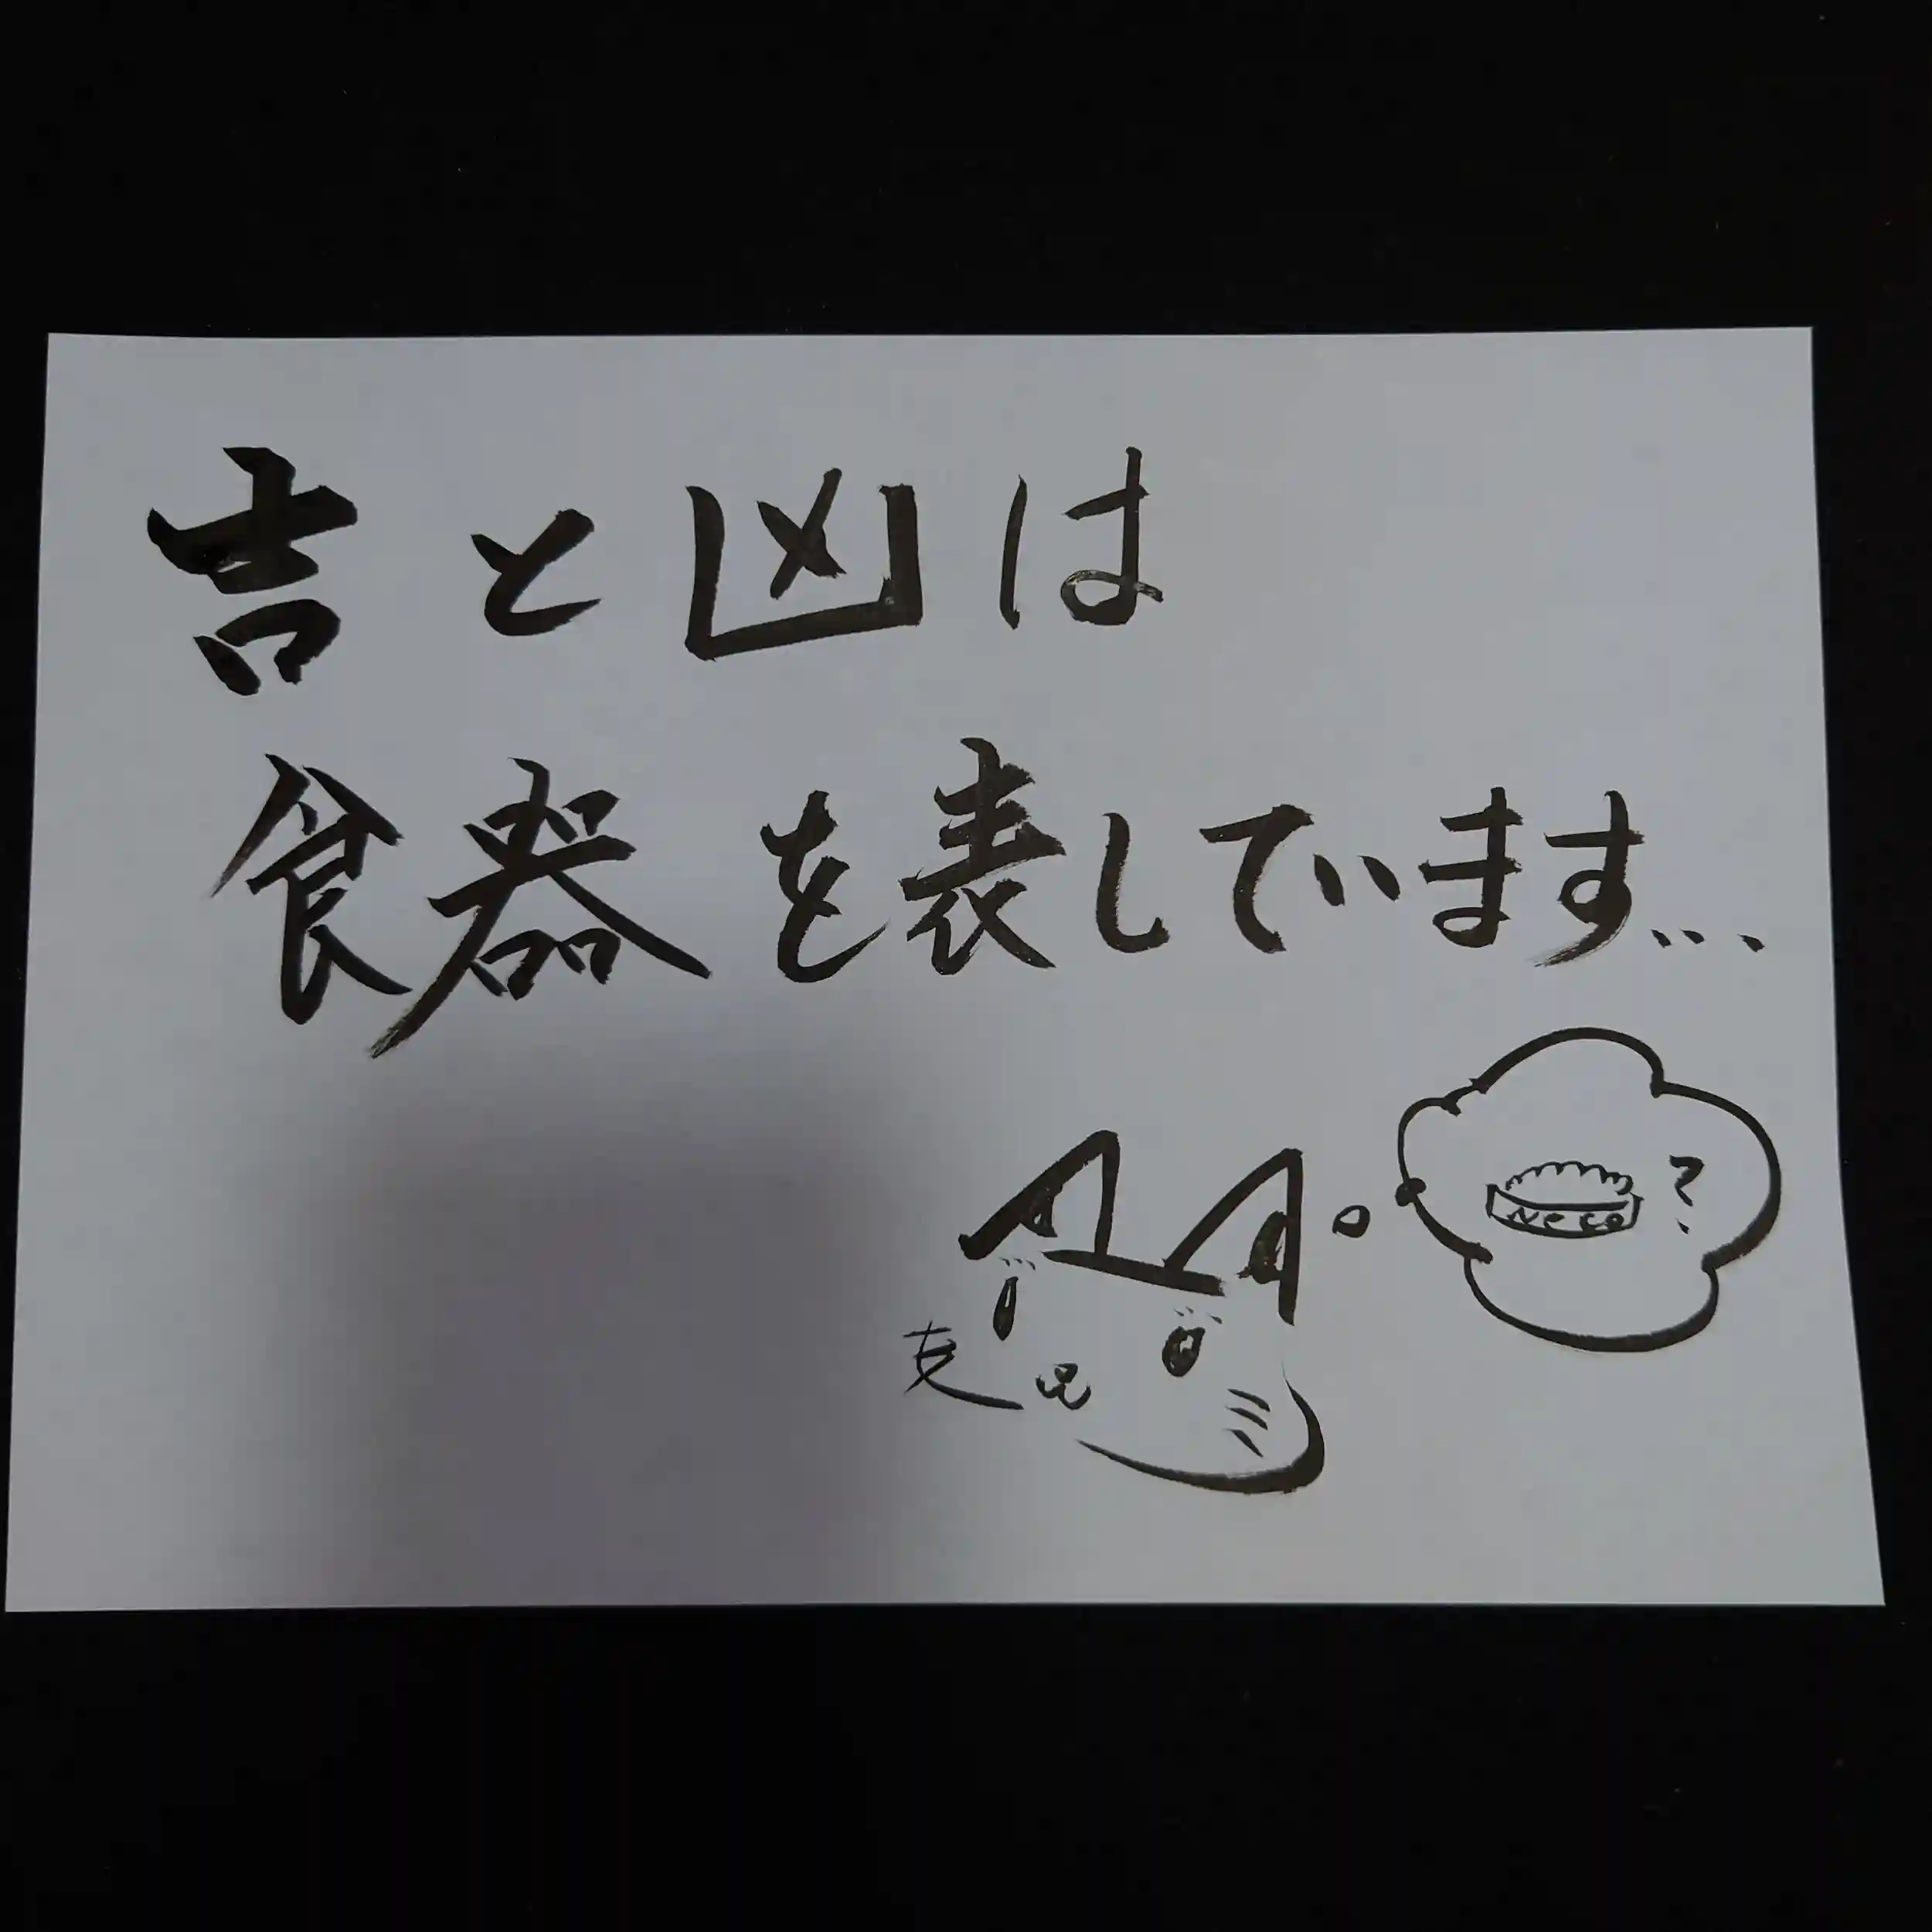 吉と凶は
食器を表しています...
neco
?